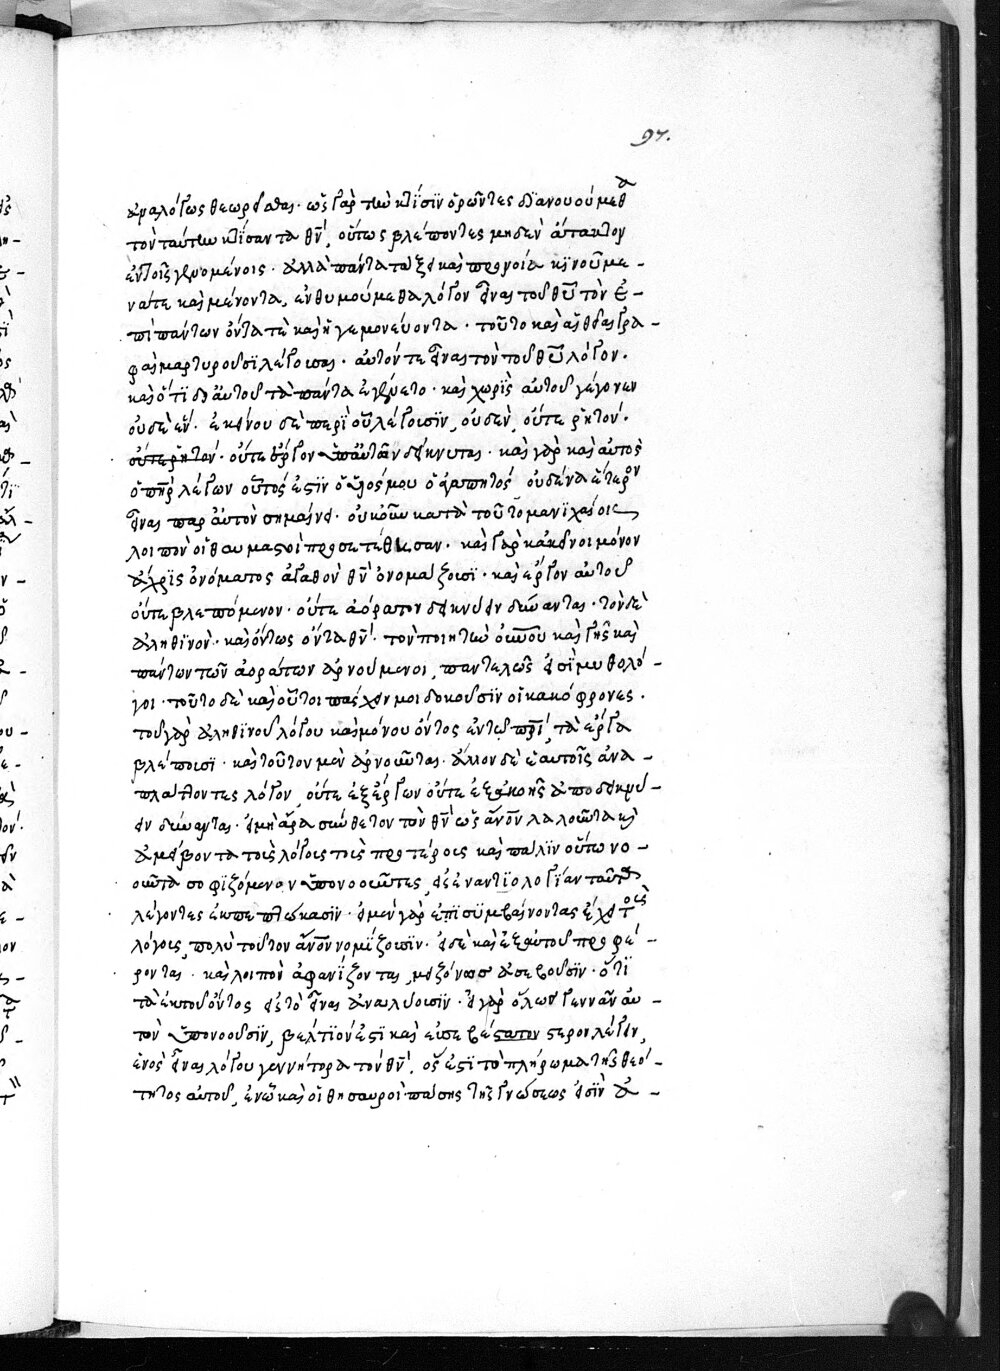 97.
ἀναλόγως θεωρεῖσθαι· ὡς γὰρ τὴν κτίσιν ὁρῶντες διανοούμεθα
τὸν ταύτην κτίσαντα θν̄, οὕτως βλέποντες μηδὲν ἄτακτον
ἐν τοῖς γενομένοις· ἀλλὰ πάντα τάξει καὶ προνοία κινούμε-
να τε καὶ μένοντα, ἐνθυμούμεθα λόγον εἶναι τοῦ θῦ τὸν ἐ-
πὶ πάντων ὄντα τε καὶ ἡγεμονεύοντα· τοῦτο καὶ αἱ θεῖαι γρα-
φαὶ μαρτυροῦσι λέγουσαι· αὐτόν τε εἶναι τὸν τοῦ θῦ λόγον·
καὶ ὅτι δι αὐτοῦ τὰ πάντα ἐγένετο· καὶ χωρὶς αὐτοῦ γέγονεν
οὐδὲ ἕν· ἐκείνου δὲ περὶ οὗ λέγουσιν, οὐδὲν, οὔτε ῥητόν·
οὔτε ῥητόν· οὔτε ἔργον ὑπ αὐτῶν δείκνυται· καὶ γὰρ καὶ αὐτὸς
ὁ πηρ λέγων οὗτός ἐστιν ὁ υἱός μου ὁ ἀγαπητός οὐδένα ἕτερον
εἶναι παρ αὐτὸν σημαίνει· οὐκοῦν κατὰ τοῦτο μανιχαίοις
λοιπὸν οἱ θαυμαστοὶ προσετέθησαν· καὶ γὰρ κἀκεῖνοι μόνον
ἄχρις ὀνόματος ἀγαθὸν θν̄ ὀνομάζουσι· καὶ ἔργον αὐτοῦ
οὔτε βλεπόμενον· οὔτε ἀόρατον δεικνύειν δύνανται· τὸν δὲ
ἀληθινὸν· καὶ ὄντως ὄντα θν̄· τὸν ποιητὴν οὐνοῦ καὶ γῆς καὶ
πάντων τῶν ἀοράτων ἀρνούμενοι, παντελῶς εἰσὶ μυθολό-
γοι· τοῦτο δὲ καὶ οὗτοι πάσχειν μοι δοκοῦσιν οἱ κακόφρονες·
τοῦ γὰρ ἀληθινοῦ λόγου καὶ μόνου ὄντος ἐν τῷ πρι, τὰ ἔργα
βλέπουσι· καὶ τοῦτον μὲν ἀρνοῦνται· ἄλλον δὲ ἑαυτοῖς ἀνα-
πλάττοντες λόγον, οὔτε ἐξ ἔργων οὔτε ἐξ ἀκοῆς ἀποδεικνύ-
ειν δύνανται· εἰ μὴ ἄρα σύνθετον τὸν θν̄ ὡς ἄνον λαλοῦντα κὶ
ἀμείβοντα τοῖς λόγοις τοὺς προτέρους καὶ πάλιν οὕτω νο-
οῦντα σοφιζόμενον ὑπονοοῦντες, εἰς ἐναντιολογίαν ταῦτα
λέγοντες ἐκπεπτώκασιν· εἰ μὲν γὰρ ἐπισυμβαίνοντας ἔχει τοὺς
λόγους, πολὺ τοῦτον ἄνον νομίζουσιν· εἰ δὲ καὶ ἐξ αὐτοῦ προφέ-
ρονται· καὶ λοιπὸν ἀφανίζονται, μειζόνως ἀσεβοῦσιν· ὅτι
τὰ ἐκ τοῦ ὄντος εἰς τὸ εἶναι ἀναλύουσιν· εἰ γὰρ ὅλως γεννᾶν αὐ-
τὸν ὑπονοοῦσιν, βέλτιόν ἐστι καὶ εὐσεβέστατον στερον λέγειν,
ἑνὸς εἶναι λόγου γεννήτορα τὸν θν̄, ὅς ἐστι τὸ πλήρωμα τῆς θεό-
τητος αὐτοῦ, ἐν ᾧ καὶ οἱ θησαυροὶ πάσης τῆς γνώσεώς εἰσὶν ἀ-